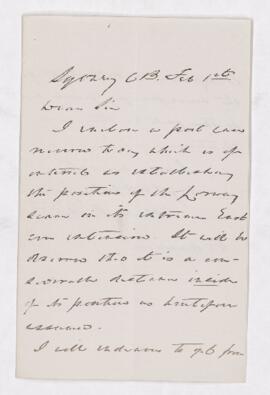 Sydney CB. Feb 1st
Dear Sir
I enclose a post card
received today which is of
interest as establishing
the position of the Lorway
seam on its extreme East
ern extension. It will be
observed that it is a con-
siderable distance inside
of its position as heretofore
assumed.
I will endeavor to get from